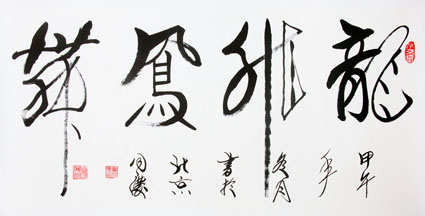 龍飛鳳舞
甲午
年
冬月
書於
北京